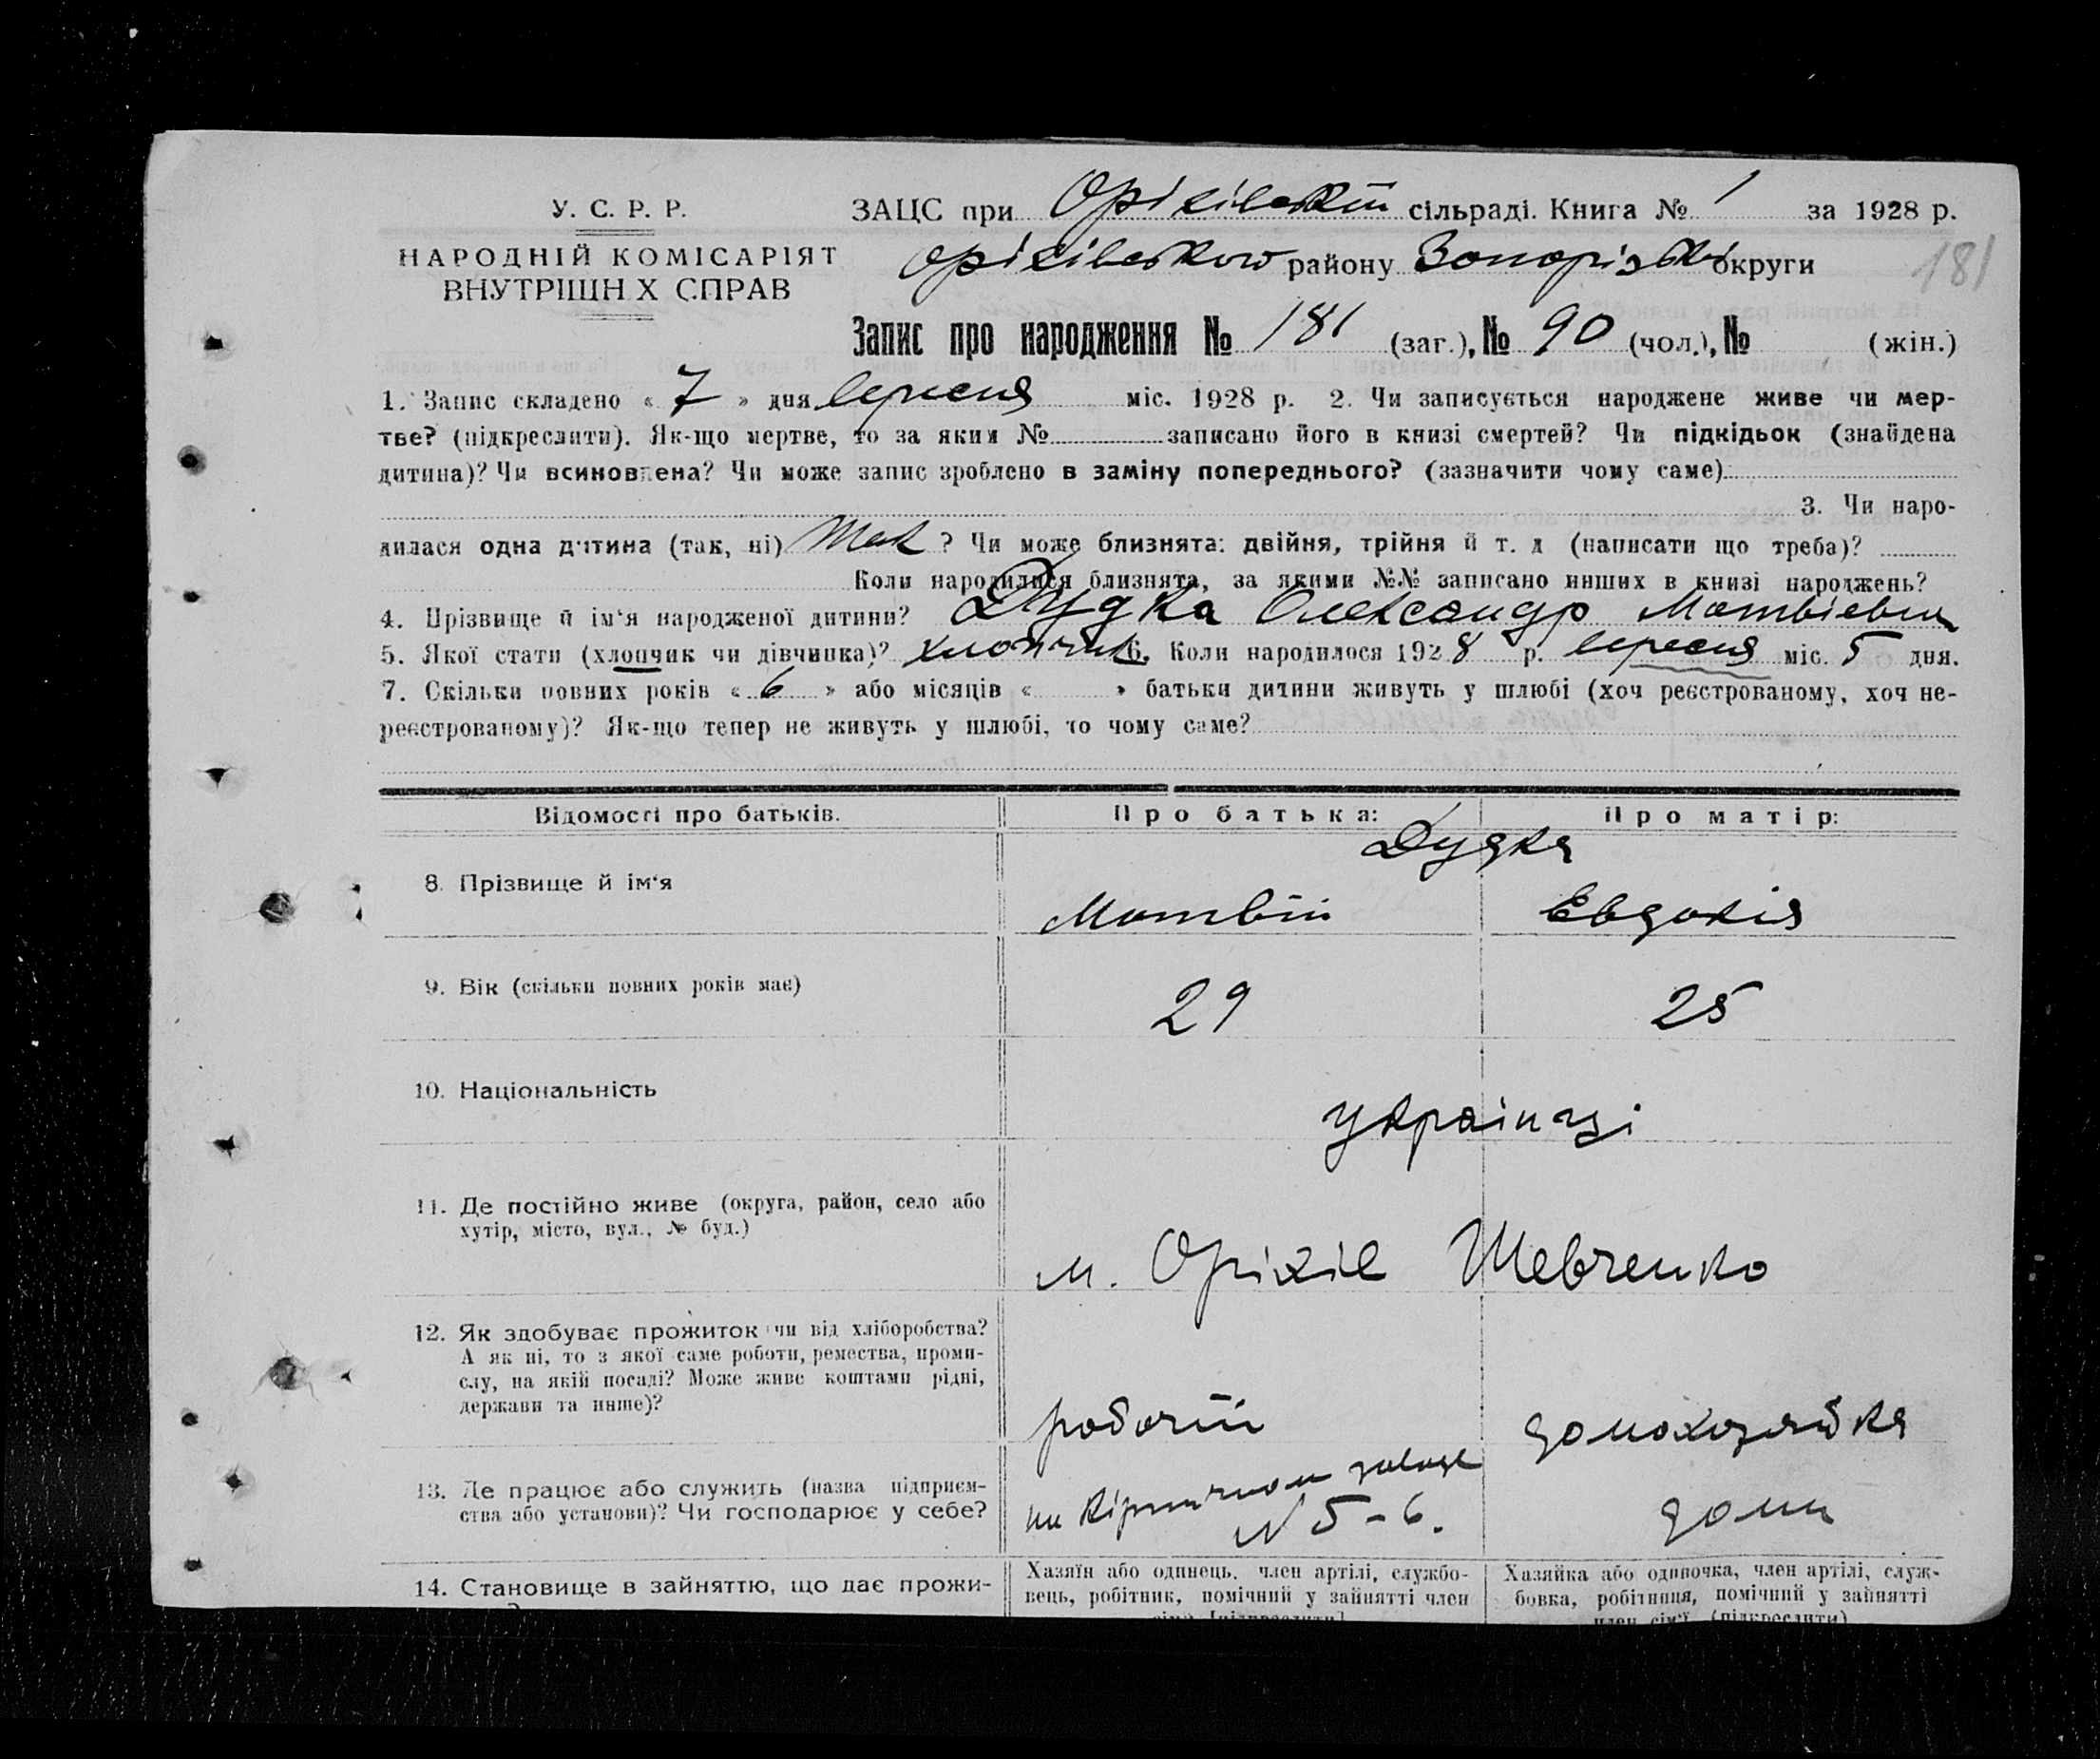 У. С. Р. Р.
НАРОДНІЙ КОМІСАРІЯТ
ВНУТРІШН Х СПРАВ
ЗАЦС при Оріхівській сільраді. Книга № 1 за 1928 р.
Оріхівського району Запорізької округи
181
Запис про народження № 181 (заг.), № 90 (чол.), № (жін.)
1. Запис складено « 7 » дня вересня міс. 1928 р. 2. Чи записується народжене живе чи мер-
тве? (підкреслити). Як-що мертве, то за яким № записано його в книзі смертей? Чи підкідьок (знайдена
дитина)? Чи всиновлена? Чи може запис зроблено в заміну попереднього? (зазначити чому саме)
3. Чи наро-
дилася одна дитина (так, ні) Так ? Чи може близнята: двійня, трійня й т. д (написати що треба)?
Коли народилися близнята, за якими №№ записано инших в книзі народжень?
4. Прізвище й ім'я народженої дитини? Дудка Олександр Матвієвич
5. Якої стати (хлопчик чи дівчинка)? хлопчик 6. Коли народилося 1928 р. вересня міс. 5 дня.
7. Скільки повних років « 6 » або місяців « » батьки дитини живуть у шлюбі (хоч реєстрованому, хоч не-
реєстрованому)? Як-що тепер не живуть у шлюбі, то чому саме?
Відомості про батьків. Про батька: Про матір:
Дудка
8. Прізвище й ім'я Матвій Евдокія
9. Вік (скільки повних років має) 29 25
10. Національність українці
11. Де постійно живе (округа, район, село або
хутір, місто, вул., № буд.)
м. Оріхів Шевченко
12. Як здобуває прожиток чи від хліборобства?
А як ні, то з якої саме роботи, ремества, проми-
слу, на якій посаді? Може живе коштами рідні,
держави та инше)?
робочий домохозяйка
13. Де працює або служить (назва підприєм-
ства або установи)? Чи господарює у себе?
на Кірпичном заводе
№ 5-6. дома
14. Становище в зайняттю, що дає прожи-
Хазяїн або одинець, член артілі, службо-
вець, робітник, помічний у зайнятті член
сім'ї [підкреслити]
Хазяйка або одиночка, член артілі, служ-
бовка, робітниця, помічний у зайнятті
член сім'ї (підкреслити)